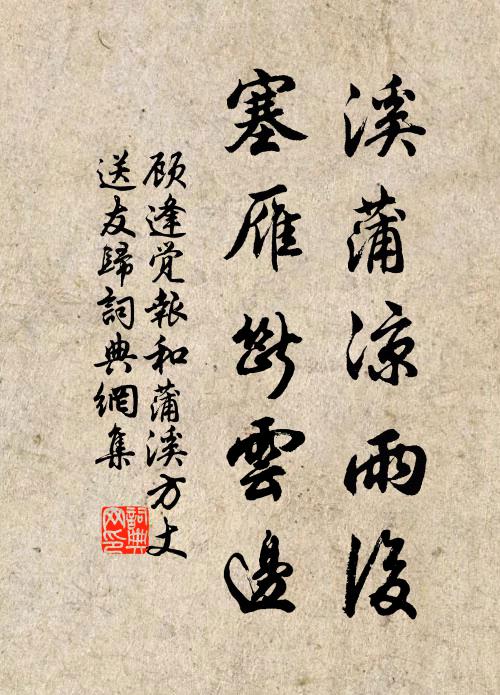 溪蒲涼雨後
塞雁斷雲邊
顾逢觉報和蒲溪方丈
送友歸詞典網集
詞典网印